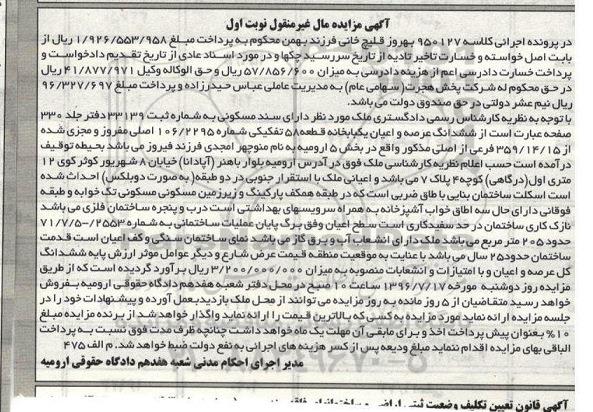 آگهی مزایده مال غیرمنقول نوبت اول
در پرونده اجرائی کلاسه ۹۵۰۱۲۷ بهروز قلیچ خانی فرزند بهمن محکوم به پرداخت مبلغ ۱/۹۲۶/۵۵۳/۹۵۸ ریال از
بابت اصل خواسته و خسارت تاخیر تادیه از تاریخ سررسید چکها و در مورد اسناد عادی از تاریخ تقدیم دادخواست و
پرداخت خسارت دادرسی اعم از هزینه دادرسی به میزان ۵۷/۸۵۶/۶۰۰ ریال و حق الوکاله وکیل ۴۱/۸۷۷/۹۷۱ ریال
در حق محکوم له شرکت پخش هجرت (سهامی عام) به مدیریت عاملی عباس حیدرزاده و پرداخت مبلغ ۹۶/۳۲۷/۶۹۷
ریال نیم عشر دولتی در حق صندوق دولت می باشد.
با توجه به نظریه کارشناس رسمی دادگستری ملک مورد نظر دارای سند مسکونی به شماره ثبت ۳۳۱۳۹ دفتر جلد ۳۳۰
صفحه عبارت است از ششدانگ عرصه و اعیان یکبابخانه قطعه ۵۸ تفکیکی شماره ۱۰۶/۲۲۹۵ اصلی مفروز و مجزی شده
از ۳۵۹/۱۴/۱۵ فرعی از اصلی مذکور واقع در بخش ۵ ارومیه به نام منوچهر امجدی فرزند فیروز می باشد بحیطه توقیف
درآمده است حسب اعلام نظریه کارشناسی ملک فوق در آدرس ارومیه بلوار باهنر (آپادانا) خیابان ۸ شهریور کوثر کوی ۱۲
متری اول (درگاهی) کوچه ۴ پلاک ۷ می باشد و اعیانی ملک با استقرار جنوبی در دو طبقه (به صورت دوبلکس) احداث شده
است اسکلت ساختمان بنایی با طاق ضربی است که در طبقه همکف پارکینگ و زیرزمین مسکونی مسکونی تک خوابه و طبقه
فوقانی دارای حال سه اطاق خواب آشپزخانه به همراه سرویسهای بهداشتی است درب و پنجره ساختمان فلزی می باشد
نازک کاری ساختمان در حد سفیدکاری است سطح اعیان وفق برگ پایان عملیات ساختمانی به شماره ۲۵۵۳/-۷۱/۷/۵
حدود ۲۰۵ متر مربع می باشد ملک دارای انشعاب آب و برق گاز می باشد نمای ساختمان سنگی و کف اعیان است قدمت
ساختمان حدود ۲۵ سال می باشد با عنایت به موقعیت منطقه قیمت عرض شارع و دیگر عوامل موثر ارزش پایه ششدانگ
کل عرصه و اعیان و با امتیازات و انشعابات منصوبه به میزان ۳/۲۰۰/۰۰۰/۰۰۰ ریال برآورد گردیده است که از طریق
مزایده روز دوشنبه مورخه ۱۳۹۶/۷/۱۷ ساعت ۱۰ صبح در محل دفتر شعبه هفدهم دادگاه حقوقی ارومیه بفروش
خواهد رسید متقاضیان از ۵ روز مانده به روز مزایده می توانند از محل ملک بازدید بعمل آورده و پیشنهادات خود را در
جلسه مزایده ارائه نماید مورد مزایده به کسی که بالاترین قیمت را ارائه نماید واگذار خواهد شد از برنده مزایده مبلغ
۱۰% بعنوان پیش پرداخت اخذ و برای مابقی آن مهلت یک ماه خواهد داشت چنانچه ظرف مدت فوق نسبت به پرداخت
الباقی بهای مزایده اقدام ننماید مبلغ ودیعه پس از کسر هزینه های اجرائی به نفع دولت ضبط خواهد شد. م الف ۴۷۵
مدیر اجرای احکام مدنی شعبه هفدهم دادگاه حقوقی ارومیه
آگهی قانون تعیین تکلیف وضعیت ثبتی اراضی و ساختمانهای فاقد